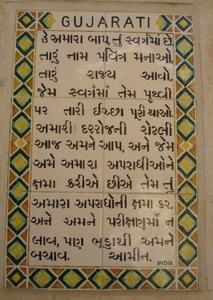 GUJARATI
હે અમારા બાપ, તું સ્વર્ગમાં છે,
તારું નામ પવિત્ર મનાઓ,
તારું રાજ્ય આવો,
જેમ સ્વર્ગમાં તેમ પૃથ્વી
પર તારી ઈચ્છા પૂરી થાઓ.
અમારી દરરોજની રોટલી
આજ અમને આપ, અને જેમ
અમે અમારા અપરાધીઓને
ક્ષમા કરીએ છીએ તેમ તું
અમારા અપરાધોની ક્ષમા કર,
અને અમને પરીક્ષણમાં ન
લાવ, પણ ભૂંડાથી અમને
બચાવ. આમીન.
INDIA